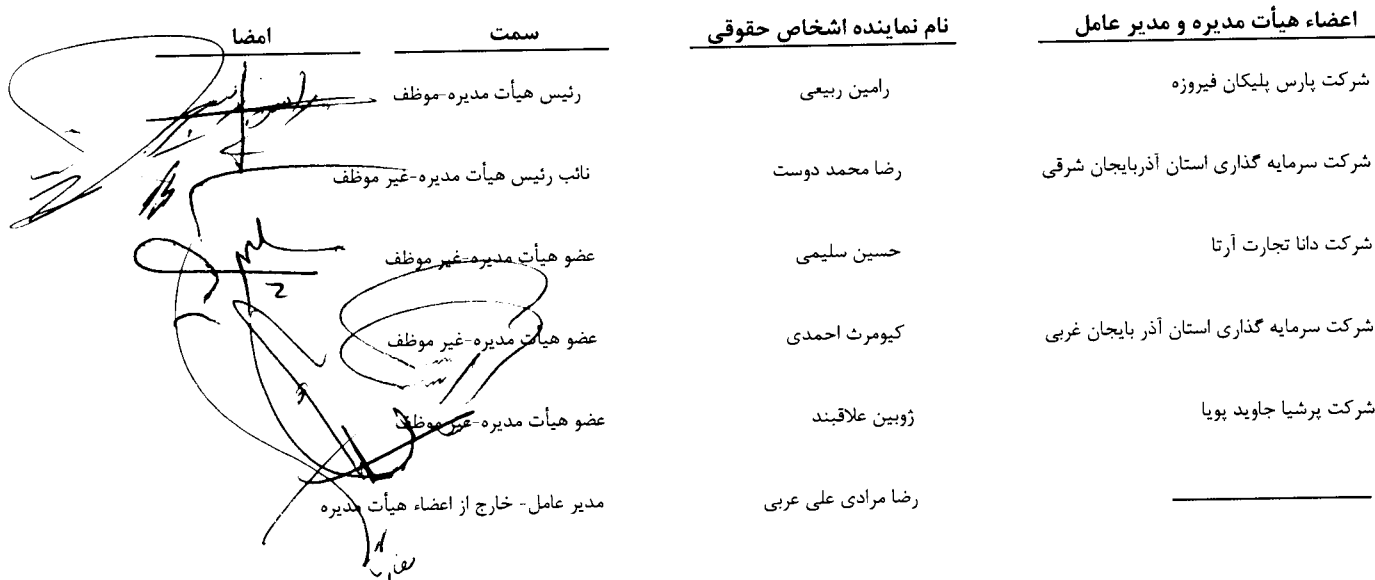 اعضاء هیأت مدیره و مدیر عامل نام نماینده اشخاص حقوقی سمت امضا
شرکت پارس پلیکان فیروزه رامین ربیعی رئیس هیأت مدیره-موظف
شرکت سرمایه گذاری استان آذربایجان شرقی رضا محمد دوست نائب رئیس هیأت مدیره-غیر موظف
شرکت دانا تجارت آرتا حسین سلیمی عضو هیأت مدیره-غیر موظف
شرکت سرمایه گذاری استان آذر بایجان غربی کیومرث احمدی عضو هیأت مدیره-غیر موظف
شرکت پرشیا جاوید پویا ژوبین علاقبند عضو هیأت مدیره-غیر موظف
رضا مرادی علی عربی مدیر عامل- خارج از اعضاء هیأت مدیره